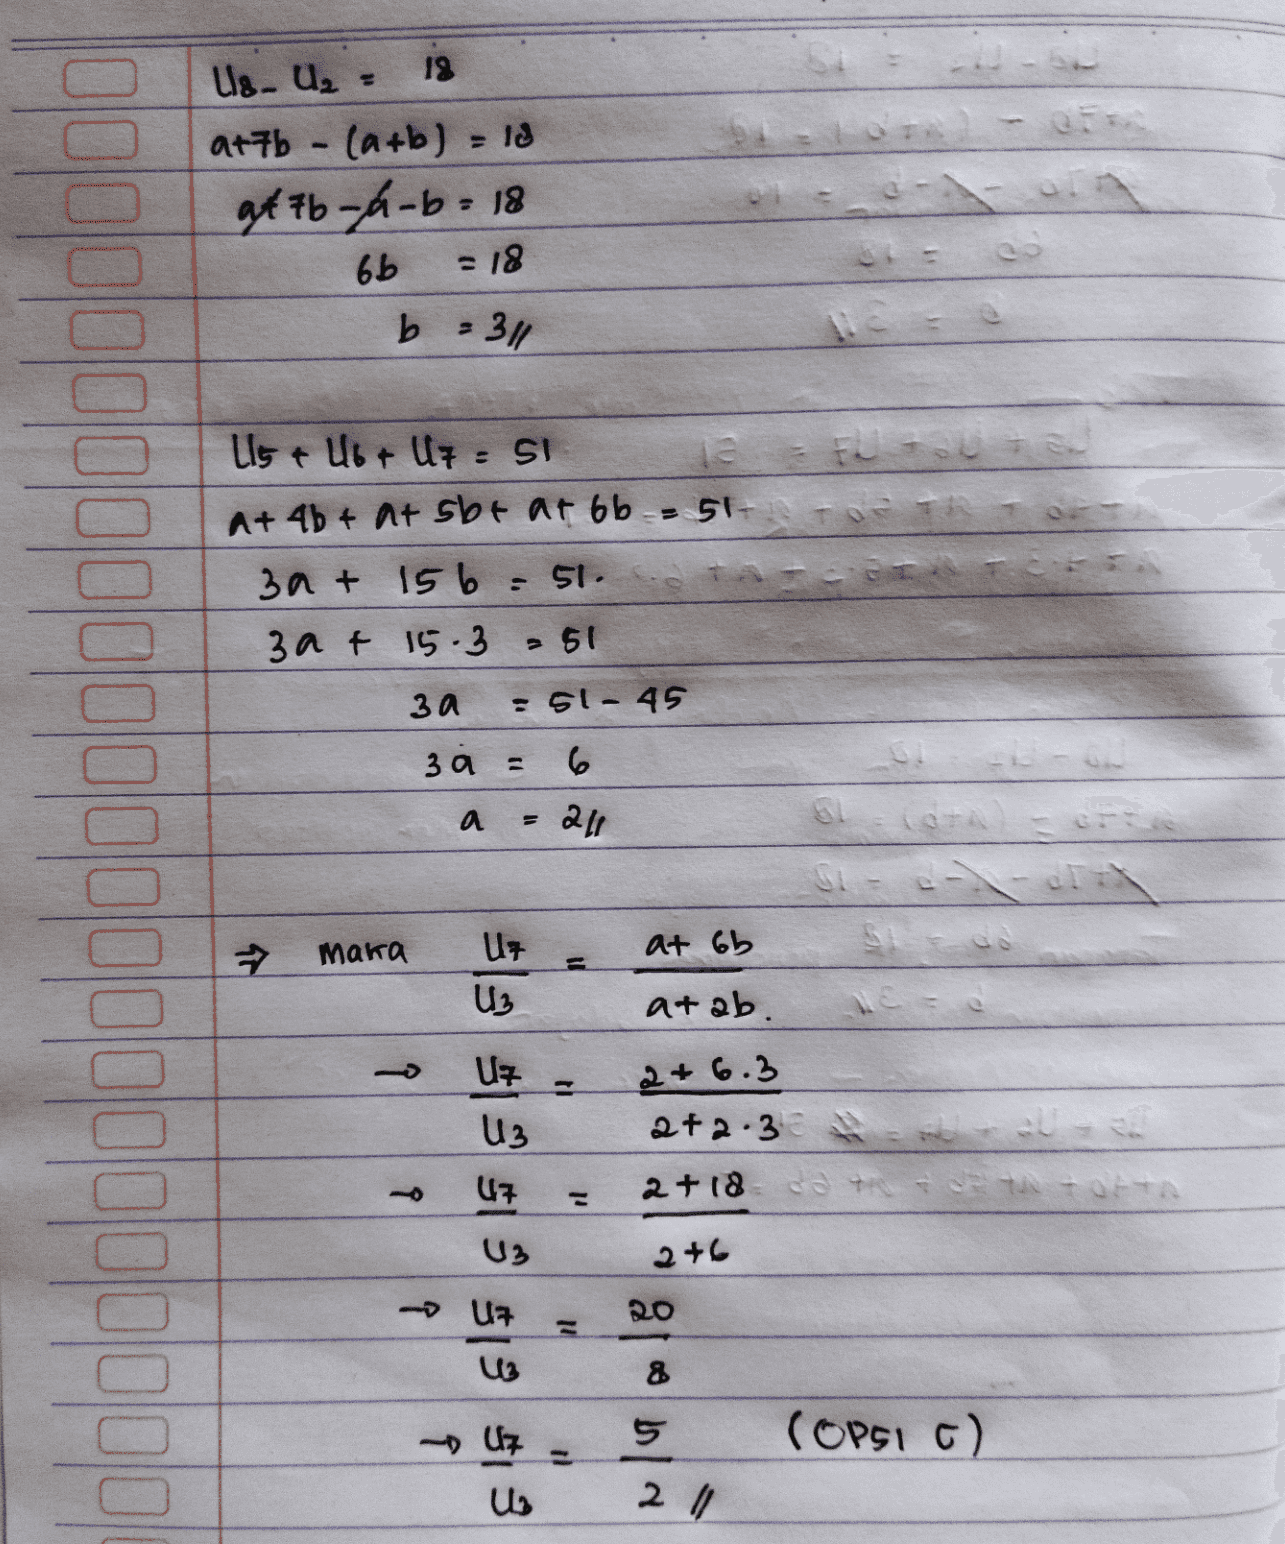 U8 - U2 = 18
a+7b - (a+b) = 18
a+7b - a - b = 18
6b = 18
b = 3//
U5 + U6 + U7 = 51
a+4b + a+5b + a+6b = 51
3a + 15b = 51.
3a + 15.3 = 51
3a = 51 - 45
3a = 6
a = 2//
⇒ maka U7/U3 = a+6b/a+2b.
→ U7/U3 = 2+6.3/2+2.3
→ U7/U3 = 2+18/2+6
→ U7/U3 = 20/8
→ U7/U3 = 5/2 // (OPSI C)